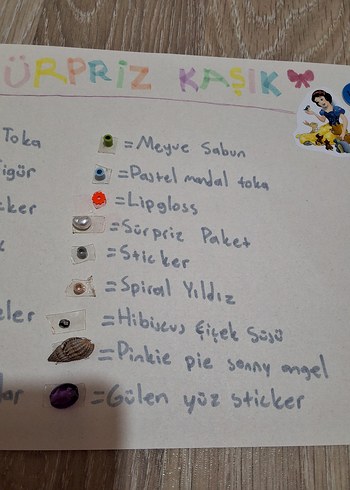 ÜRPRİZ KAŞIK
Toka
= Meyve Sabun
igür
= Pastel mandal toka
cker
= Lipgloss
= Sürpriz Paket
= Sticker
= Spiral Yıldız
eler
= Hibiscus Çiçek Süsü
= Pinkie pie sonny angel
lar
= Gülen yüz sticker